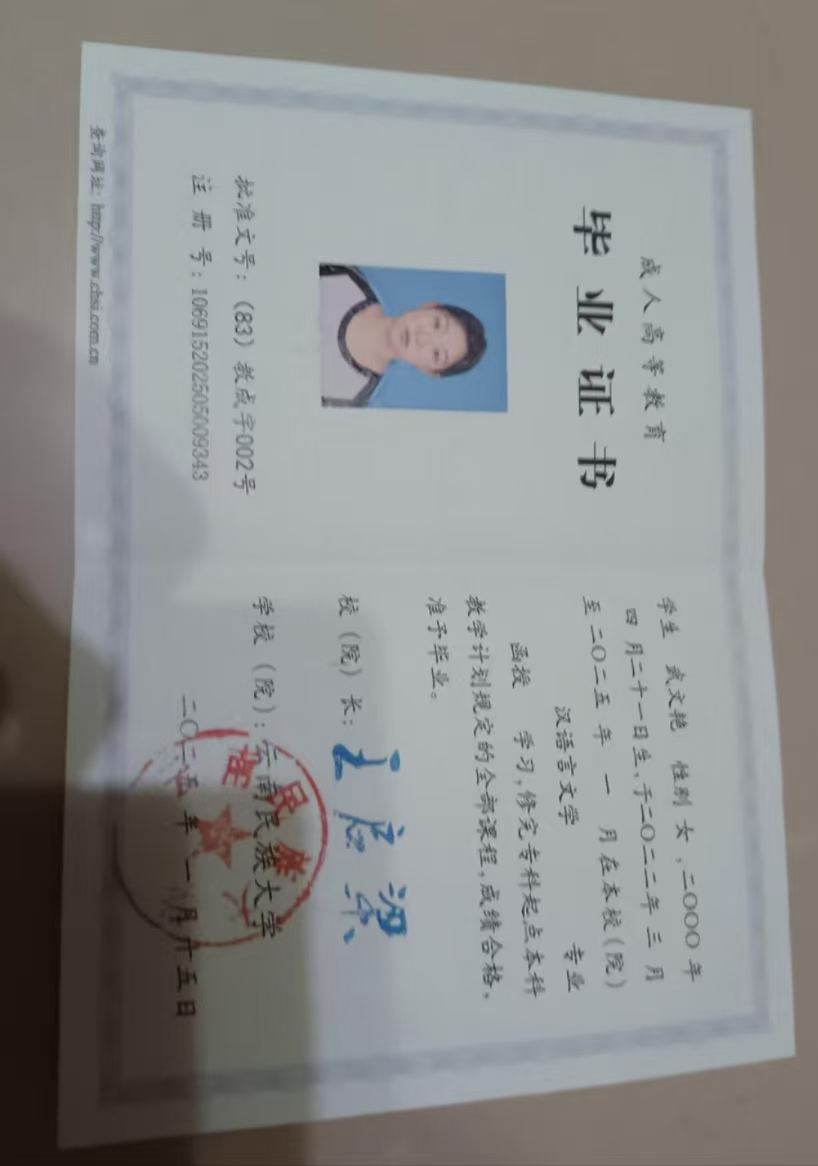 成人高等教育
毕业证书
批准文号：(83)教成字002号
注册号：106915202505009343
查询网址：http://www.chsi.com.cn
学生 武文艳 性别 女，二〇〇〇年
四月二十一日生，于二〇二二年三月
至二〇二五年一月在本校(院)
汉语言文学 专业
函授 学习，修完专科起点本科
教学计划规定的全部课程，成绩合格，
准予毕业。
校(院)长：
学校(院)：云南民族大学
二〇二五年一月廿五日